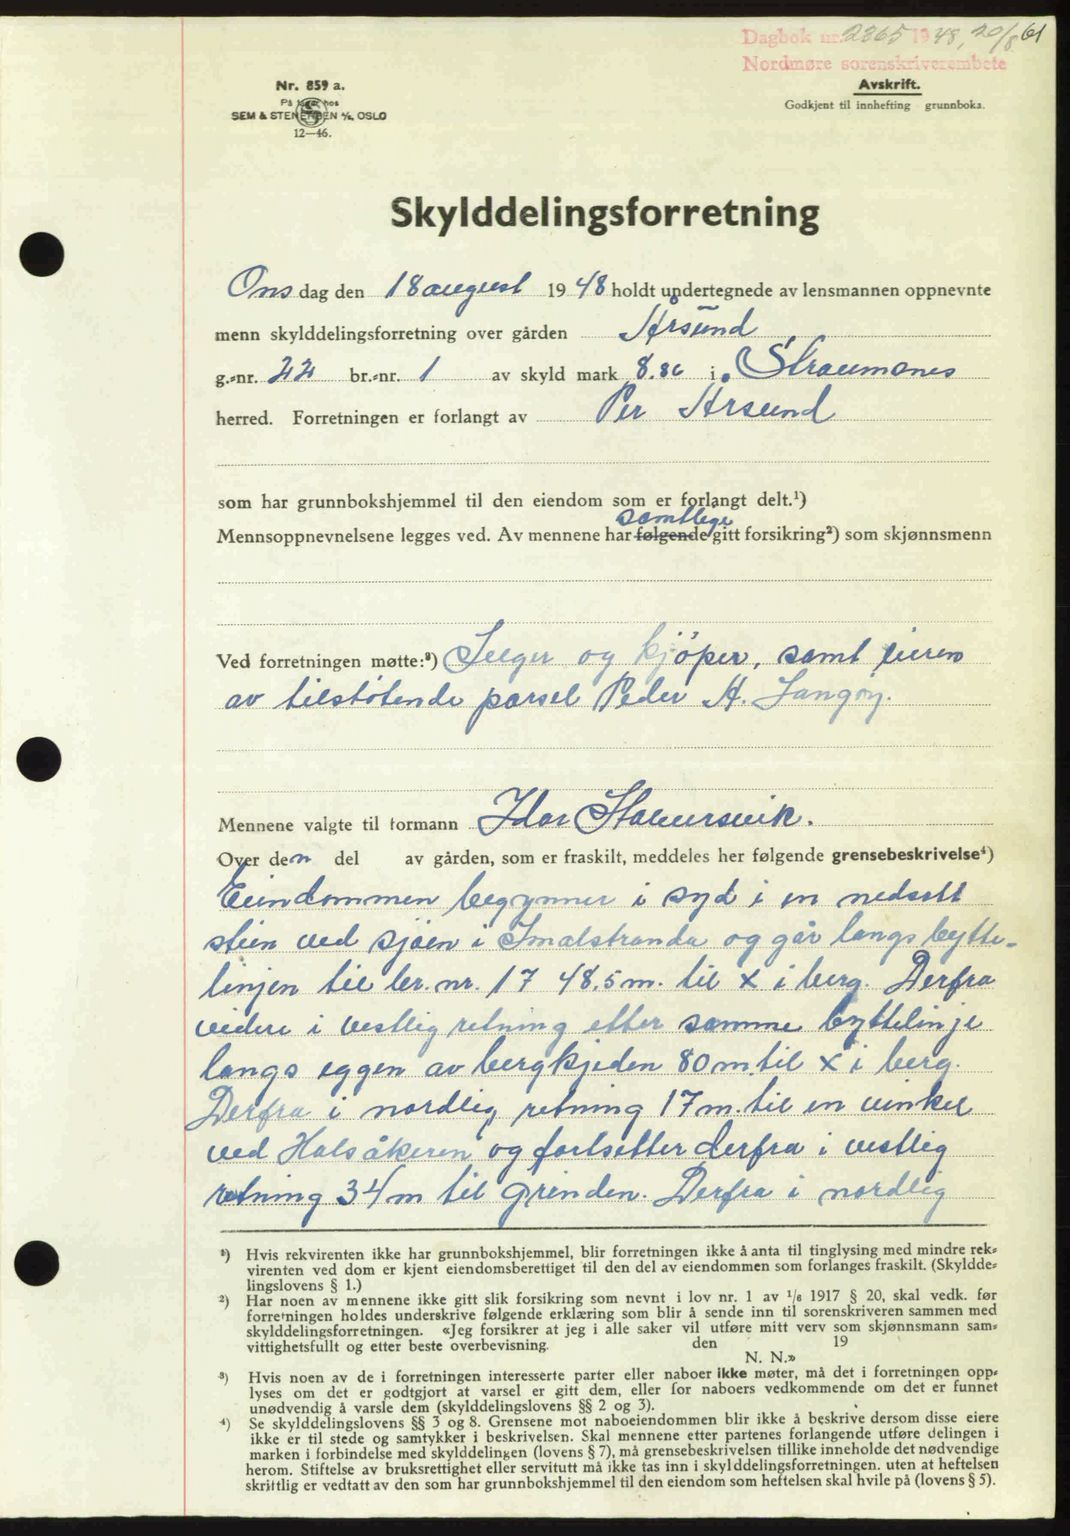 Dagbok nr. 2365 1948, 20/8 61
Nordmøre sorenskriverembete
Nr. 859 a.
På lager hos
SEM & STENERSEN A/S, OSLO
12—46.
Avskrift.
Godkjent til innhefting grunnboka.
Skylddelingsforretning
Ons dag den 18 august 1948 holdt undertegnede av lensmannen oppnevnte
menn skylddelingsforretning over gården Årsund
g.-nr. 22 br.-nr. 1 av skyld mark 8.86 i Straumsnes
herred. Forretningen er forlangt av Per Årsund
som har grunnbokshjemmel til den eiendom som er forlangt delt.¹)
samtlege
Mennsoppnevnelsene legges ved. Av mennene har følgende gitt forsikring²) som skjønnsmenn
Ved forretningen møtte:³) Selger og kjöper, samt eieren
av tilstötende parsel Peder A. Langöy.
Mennene valgte til formann Idar Stavarsvik.
Over den del av gården, som er fraskilt, meddeles her følgende grensebeskrivelse⁴)
Eiendommen begynner i syd i en nedsatt
stein ved sjöen i Smalstranda og går langs bytte-
linjen til br. nr. 17 48,5 m. til x i berg. Derfra
videre i vestlig retning etter samme byttelinje
langs eggen av bergkjeden 80 m. til x i berg.
Derfra i nordlig retning 17 m. til en vinkel
ved Halsåkeren og fortsetter derfra i vestlig
retning 34 m til grinden. Derfra i nordlig
¹) Hvis rekvirenten ikke har grunnbokshjemmel, blir forretningen ikke å anta til tinglysing med mindre rek-
virenten ved dom er kjent eiendomsberettiget til den del av eiendommen som forlanges fraskilt. (Skyldde-
lingslovens § 1.)
²) Har noen av mennene ikke gitt slik forsikring som nevnt i lov nr. 1 av 1/6 1917 § 20, skal vedk. før
forretningen holdes underskrive følgende erklæring som blir å sende inn til sorenskriveren sammen med
skylddelingsforretningen. «Jeg forsikrer at jeg i alle saker vil utføre mitt verv som skjønnsmann sam-
vittighetsfullt og etter beste overbevisning. den 19
N. N.»
³) Hvis noen av de i forretningen interesserte parter eller naboer ikke møter, må det i forretningen opp-
lyses om det er godtgjort at varsel er gitt dem, eller for naboers vedkommende om det er funnet
unødvendig å varsle dem (skylddelingslovens §§ 2 og 3).
⁴) Se skylddelingslovens §§ 3 og 8. Grensene mot naboeiendommen blir ikke å beskrive dersom disse eiere
ikke er til stede og samtykker i beskrivelsen. Skal mennene etter partenes forlangende utføre delingen i
marken i forbindelse med skylddelingen (lovens § 7), må grensebeskrivelsen tillike inneholde det nødvendige
herom. Stiftelse av bruksrettighet eller servitutt må ikke tas inn i skylddelingsforretningen. uten at heftelsen
skriftlig er vedtatt av den som har grunnbokshjemmel til den eiendom som heftelsen skal hvile på (lovens § 5).